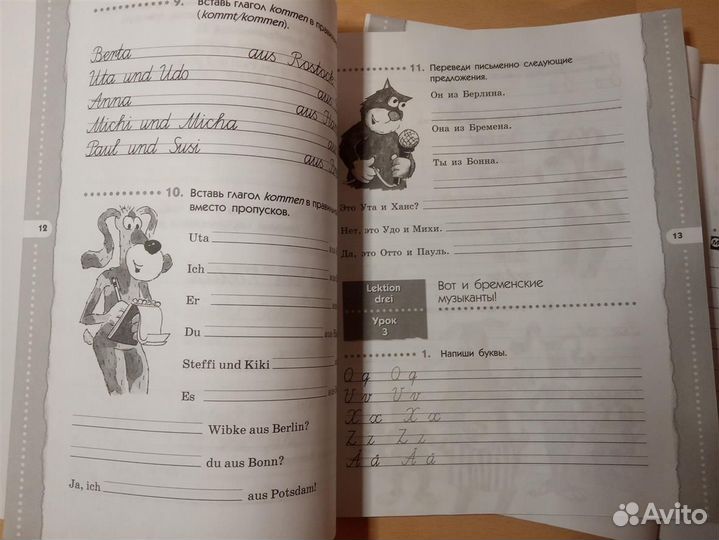 9. Вставь глагол kommen в
(kommt/kommen).
Berta aus Rostock
Uta und Udo aus
Anna aus
Michi und Micha
Paul und Susi aus
10. Вставь глагол kommen в
вместо пропусков.
Uta
Ich
Er
Du
Steffi und Kiki
Es
Wibke aus Berlin?
du aus Bonn?
Ja, ich aus Potsdam!
12
11. Переведи письменно следующие
предложения.
Он из Берлина.
Она из Бремена.
Ты из Бонна.
Это Ута и Ханс?
Нет, это Удо и Михи.
Да, это Отто и Пауль.
13
Lektion
drei
Урок
3
Вот и бременские
музыканты!
1. Напиши буквы.
Q q Q q
V v V v
X x X x
Z z Z z
Ä ä Ä ä
Avito